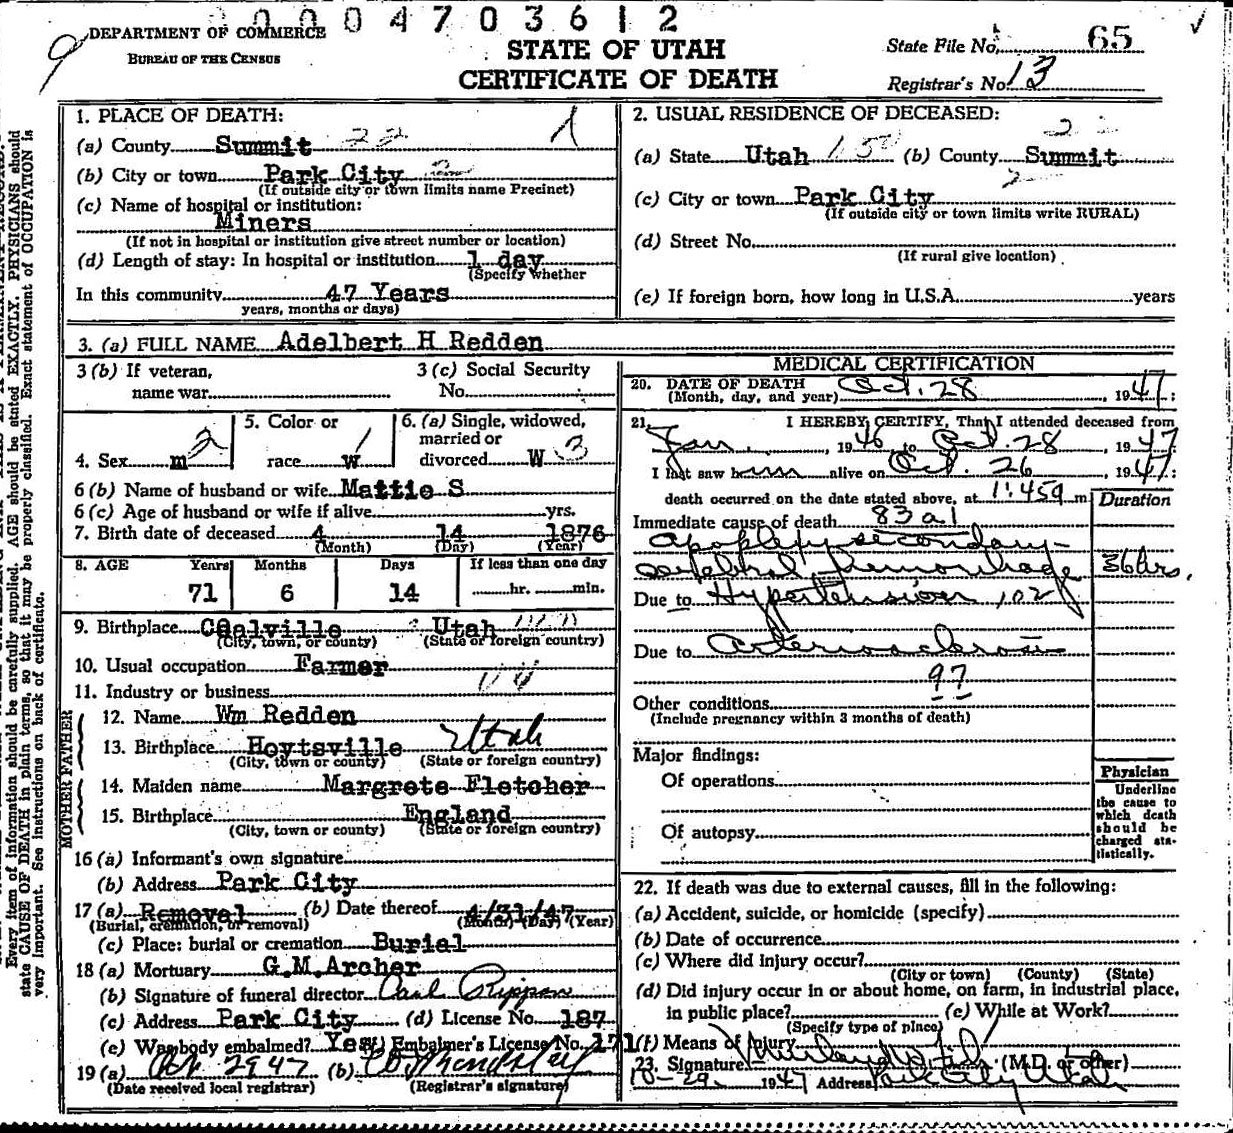 0004703612
9
DEPARTMENT OF COMMERCE
BUREAU OF THE CENSUS
STATE OF UTAH
CERTIFICATE OF DEATH
State File No. 65
Registrar's No. 13
Every item of information should be carefully supplied. AGE should be stated EXACTLY. PHYSICIANS should
state CAUSE OF DEATH in plain terms, so that it may be properly classified. Exact statement of OCCUPATION is
very important. See instructions on back of certificate.
1. PLACE OF DEATH: 1
(a) County Summit 22
(b) City or town Park City 2
(If outside city or town limits name Precinct)
(c) Name of hospital or institution:
Miners
(If not in hospital or institution give street number or location)
(d) Length of stay: In hospital or institution 1 day
(Specify whether
In this community 47 Years
years, months or days)
2. USUAL RESIDENCE OF DECEASED:
(a) State Utah 150 (b) County Summit
(c) City or town Park City
(If outside city or town limits write RURAL)
(d) Street No.
(If rural give location)
(e) If foreign born, how long in U.S.A. years
3. (a) FULL NAME Adelbert H Redden
3 (b) If veteran,
name war
3 (c) Social Security
No.
4. Sex m 2
5. Color or
race W 1
6. (a) Single, widowed,
married or
divorced W 3
6 (b) Name of husband or wife Mattie S
6 (c) Age of husband or wife if alive yrs.
7. Birth date of deceased 4 14 1876
(Month) (Day) (Year)
8. AGE Years Months Days If less than one day
71 6 14 hr. min.
9. Birthplace Coalville Utah
(City, town, or county) (State or foreign country)
10. Usual occupation Farmer
11. Industry or business
FATHER
12. Name Wm Redden
13. Birthplace Hoytsville Utah
(City, town or county) (State or foreign country)
MOTHER
14. Maiden name Margrete Fletcher
15. Birthplace England
(City, town or county) (State or foreign country)
16 (a) Informant's own signature
(b) Address Park City
17 (a) Removal (b) Date thereof 4/31/47
(Burial, cremation, or removal) (Month) (Day) (Year)
(c) Place: burial or cremation Burial
18 (a) Mortuary G.M.Archer
(b) Signature of funeral director Carl Rippon
(c) Address Park City (d) License No. 187
(e) Was body embalmed? Yes (f) Embalmer's License No. 171
19 (a) Oct 29 47 (b)
(Date received local registrar) (Registrar's signature)
MEDICAL CERTIFICATION
20. DATE OF DEATH
(Month, day, and year) Oct. 28, 1947:
21. I HEREBY CERTIFY, That I attended deceased from
Jan., 1946 to Oct. 28, 1947
I last saw him alive on Oct. 26, 1947:
death occurred on the date stated above, at 1:45 a m
Duration
Immediate cause of death 83a1
apoplexy secondary
cerebral hemorrhage 36 hrs.
Due to Hypertension 102
Due to arteriosclerosis
97
Other conditions
(Include pregnancy within 3 months of death)
Major findings:
Of operations
Of autopsy
Physician
Underline
the cause to
which death
should be
charged sta-
tistically.
22. If death was due to external causes, fill in the following:
(a) Accident, suicide, or homicide (specify)
(b) Date of occurrence
(c) Where did injury occur?
(City or town) (County) (State)
(d) Did injury occur in or about home, on farm, in industrial place,
in public place? (e) While at Work?
(Specify type of place)
(f) Means of Injury
23. Signature (M.D. or other)
10-29, 1947 Address Park City Utah